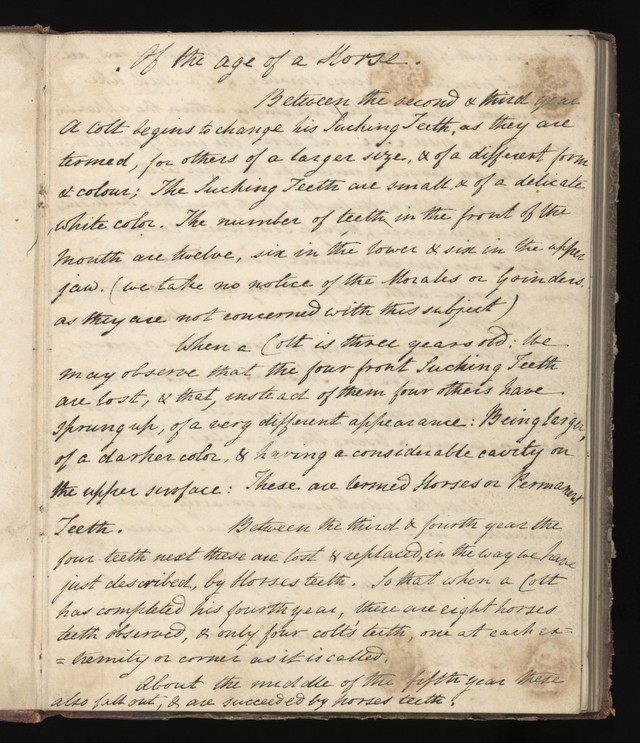 Of the age of a Horse.
Between the second & third year
A Colt begins to change his Sucking Teeth, as they are
termed, for others of a larger size, & of a different form
& colour; The Sucking Teeth are small & of a delicate
white color. The number of teeth in the front of the
Mouth are twelve, six in the lower & six in the upper
jaw. (we take no notice of the Morales or Grinders,
as they are not concerned with this subject)
When a Colt is three years old; We
may observe that the four front Sucking Teeth
are lost, & that, instead of them four others have
sprung up, of a very different appearance: Being larger,
of a darker color, & having a considerable cavity on
the upper surface: These are termed Horses or Permanent
Teeth. Between the third & fourth year the
four teeth next these are lost & replaced, in the way we have
just described, by Horses teeth. So that when a Colt
has completed his fourth year, there are eight horses
teeth observed, & only four colt's teeth, one at each ex=
=tremity or corner as it is called.
About the middle of the fifth year these
also fall out; & are succeeded by horses teeth.